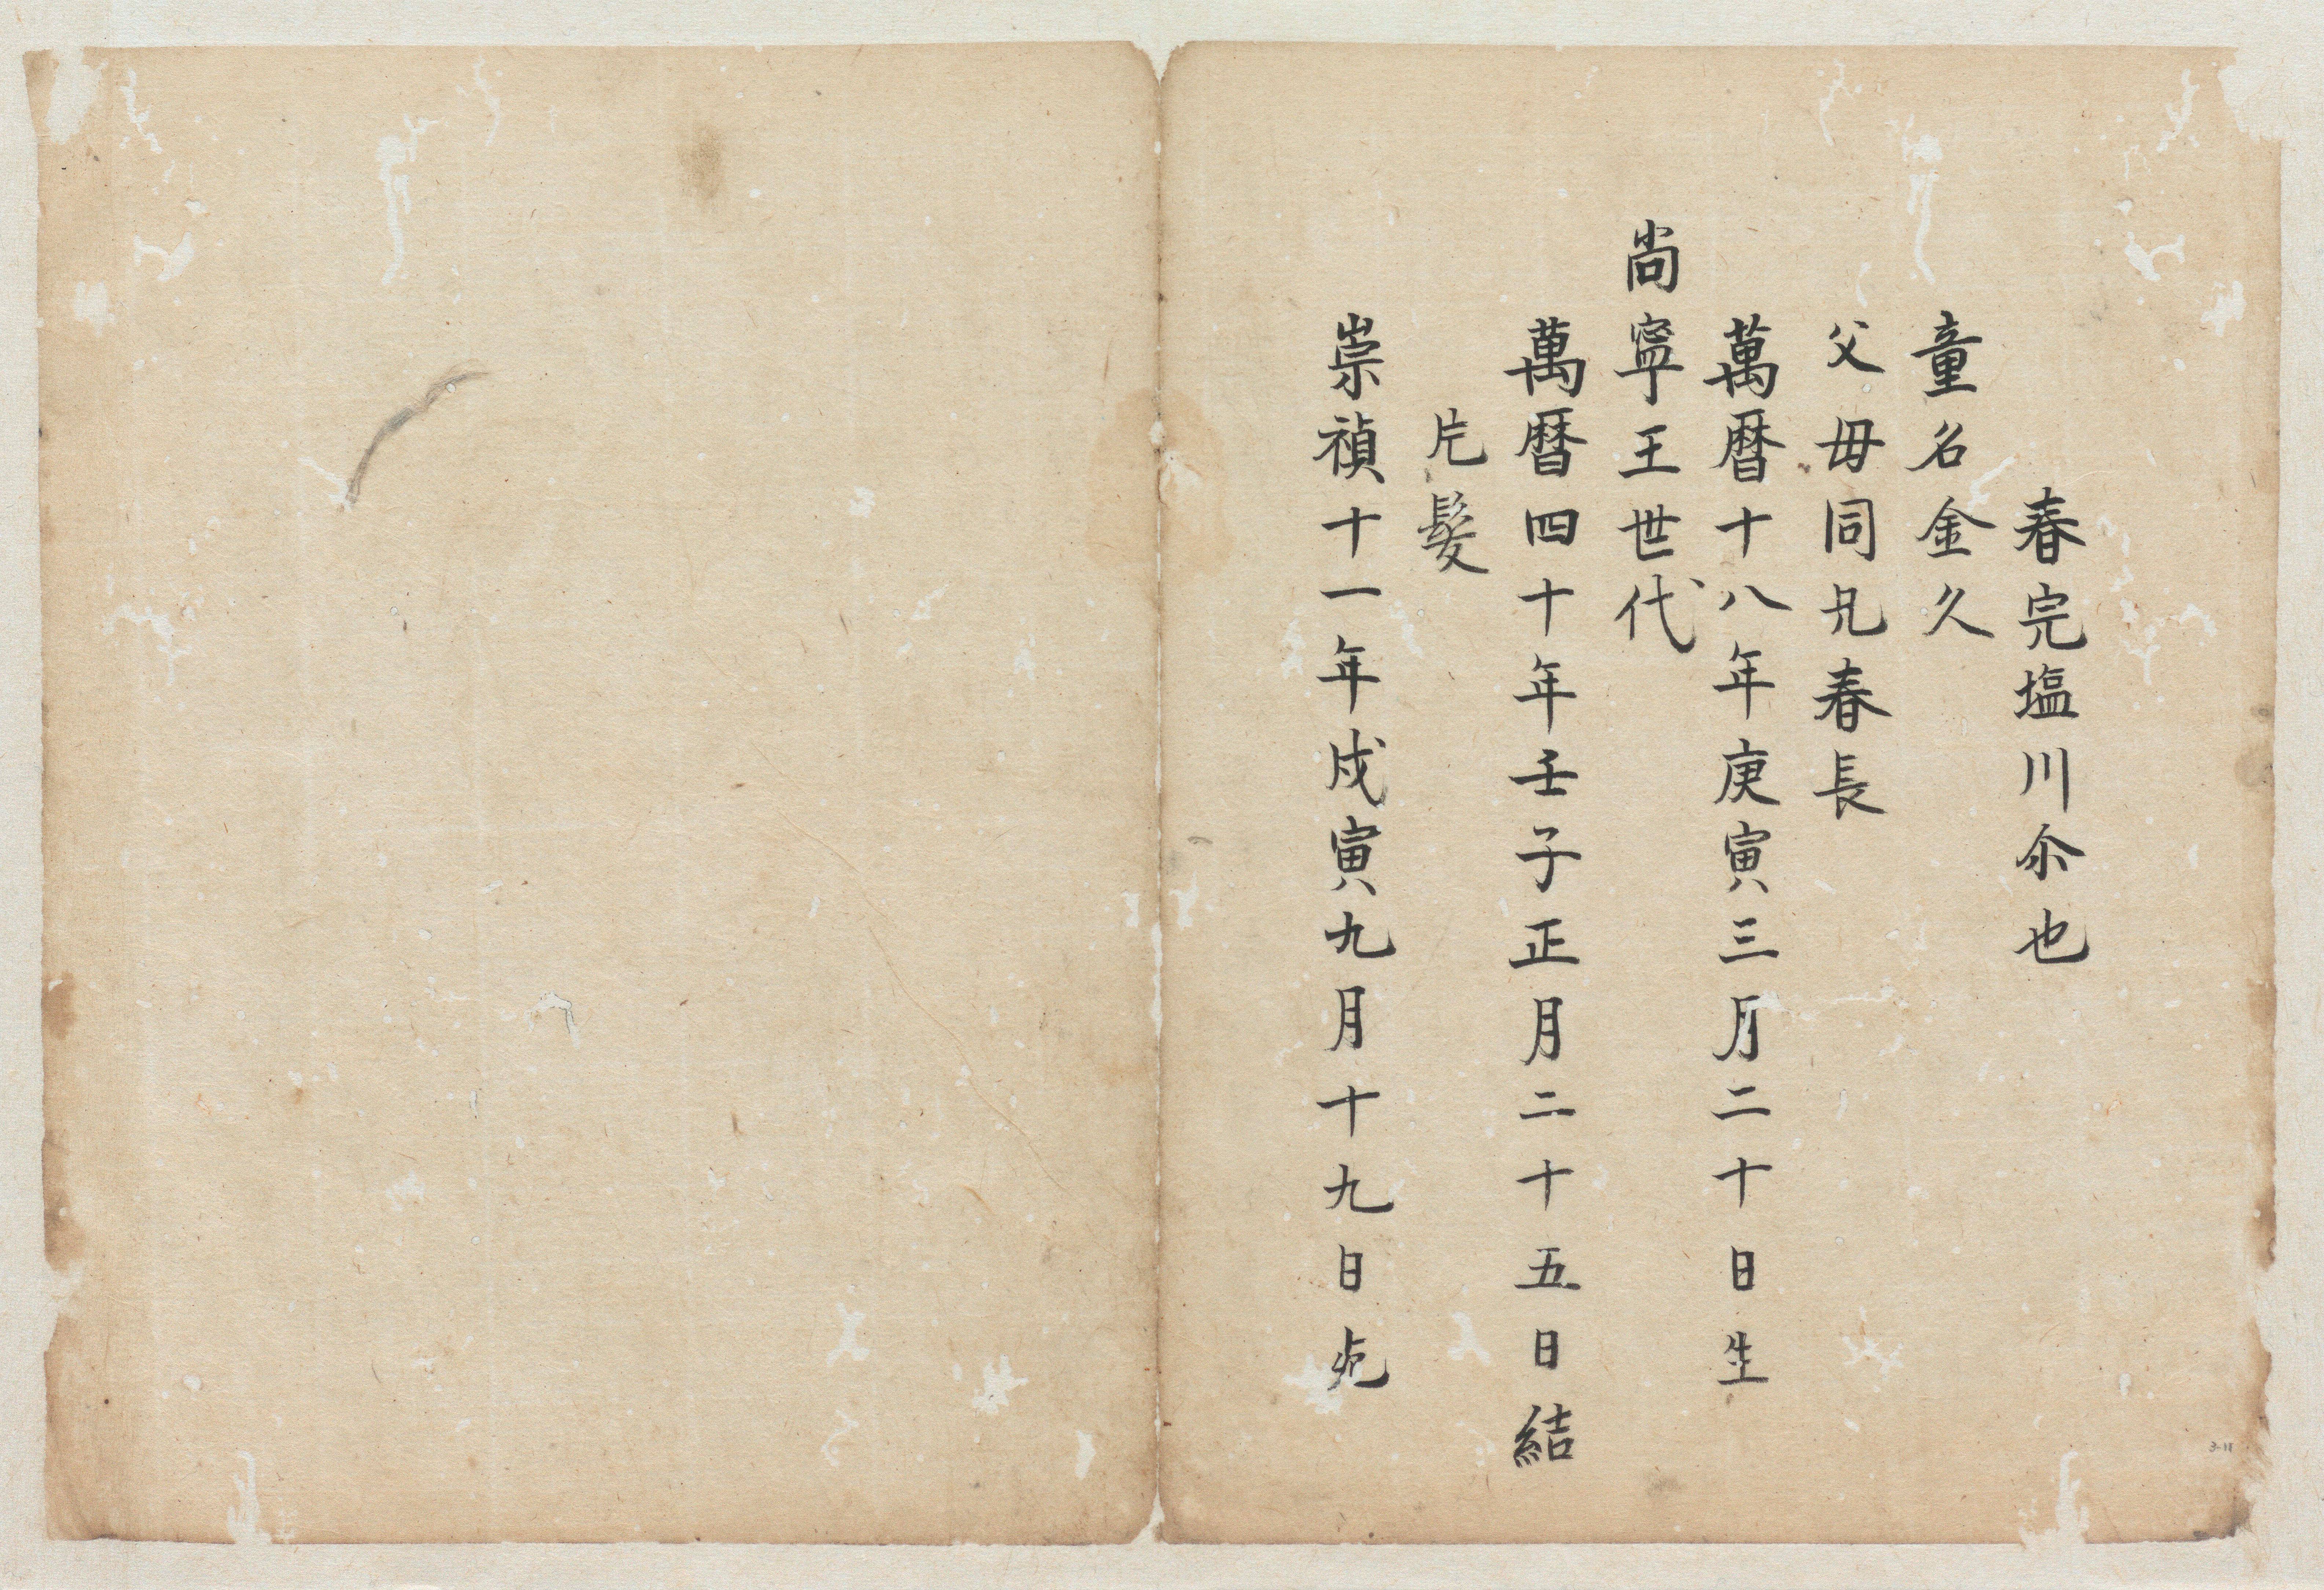 春完塩川尒也
童名金久
父母同凢春長
萬暦十八年庚寅三月二十日生
尚寧王世代
萬暦四十年壬子正月二十五日結
片髪
崇禎十一年戊寅九月十九日
3-11